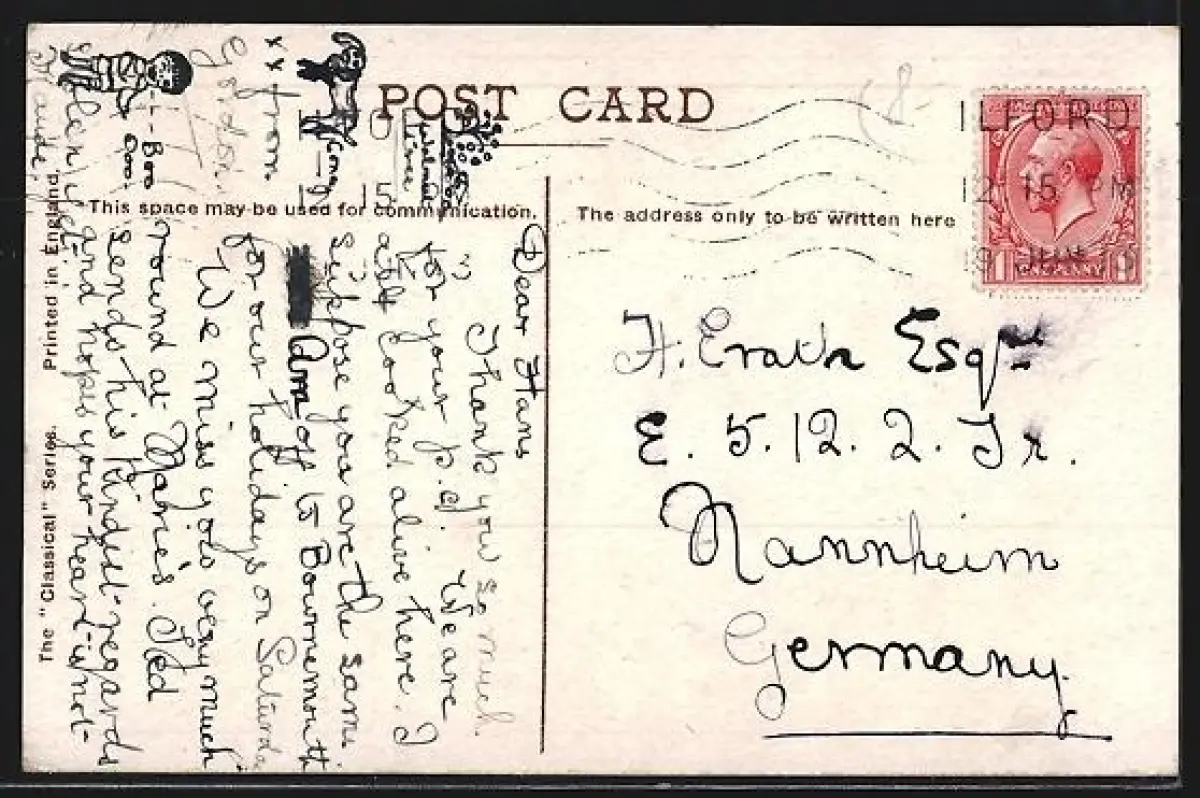 POST CARD
This space may be used for communication.
The address only to be written here
ILFORD
12 15 PM
19
ONE PENNY
H. Erath Esqre
E. 5. 12. 2. Tr.
Mannheim
Germany
Dear Hans
Thank you so much
for your p.c. We are
all cooked alive here. I
suppose you are the same
Am off to Bournemouth
for our holidays on Saturda
We miss you very much
round at Marie's. Ted
sends his kindest regards
and hopes your heart is not
Maude
xx from
Gordon
The "Classical" Series.
Printed in England.